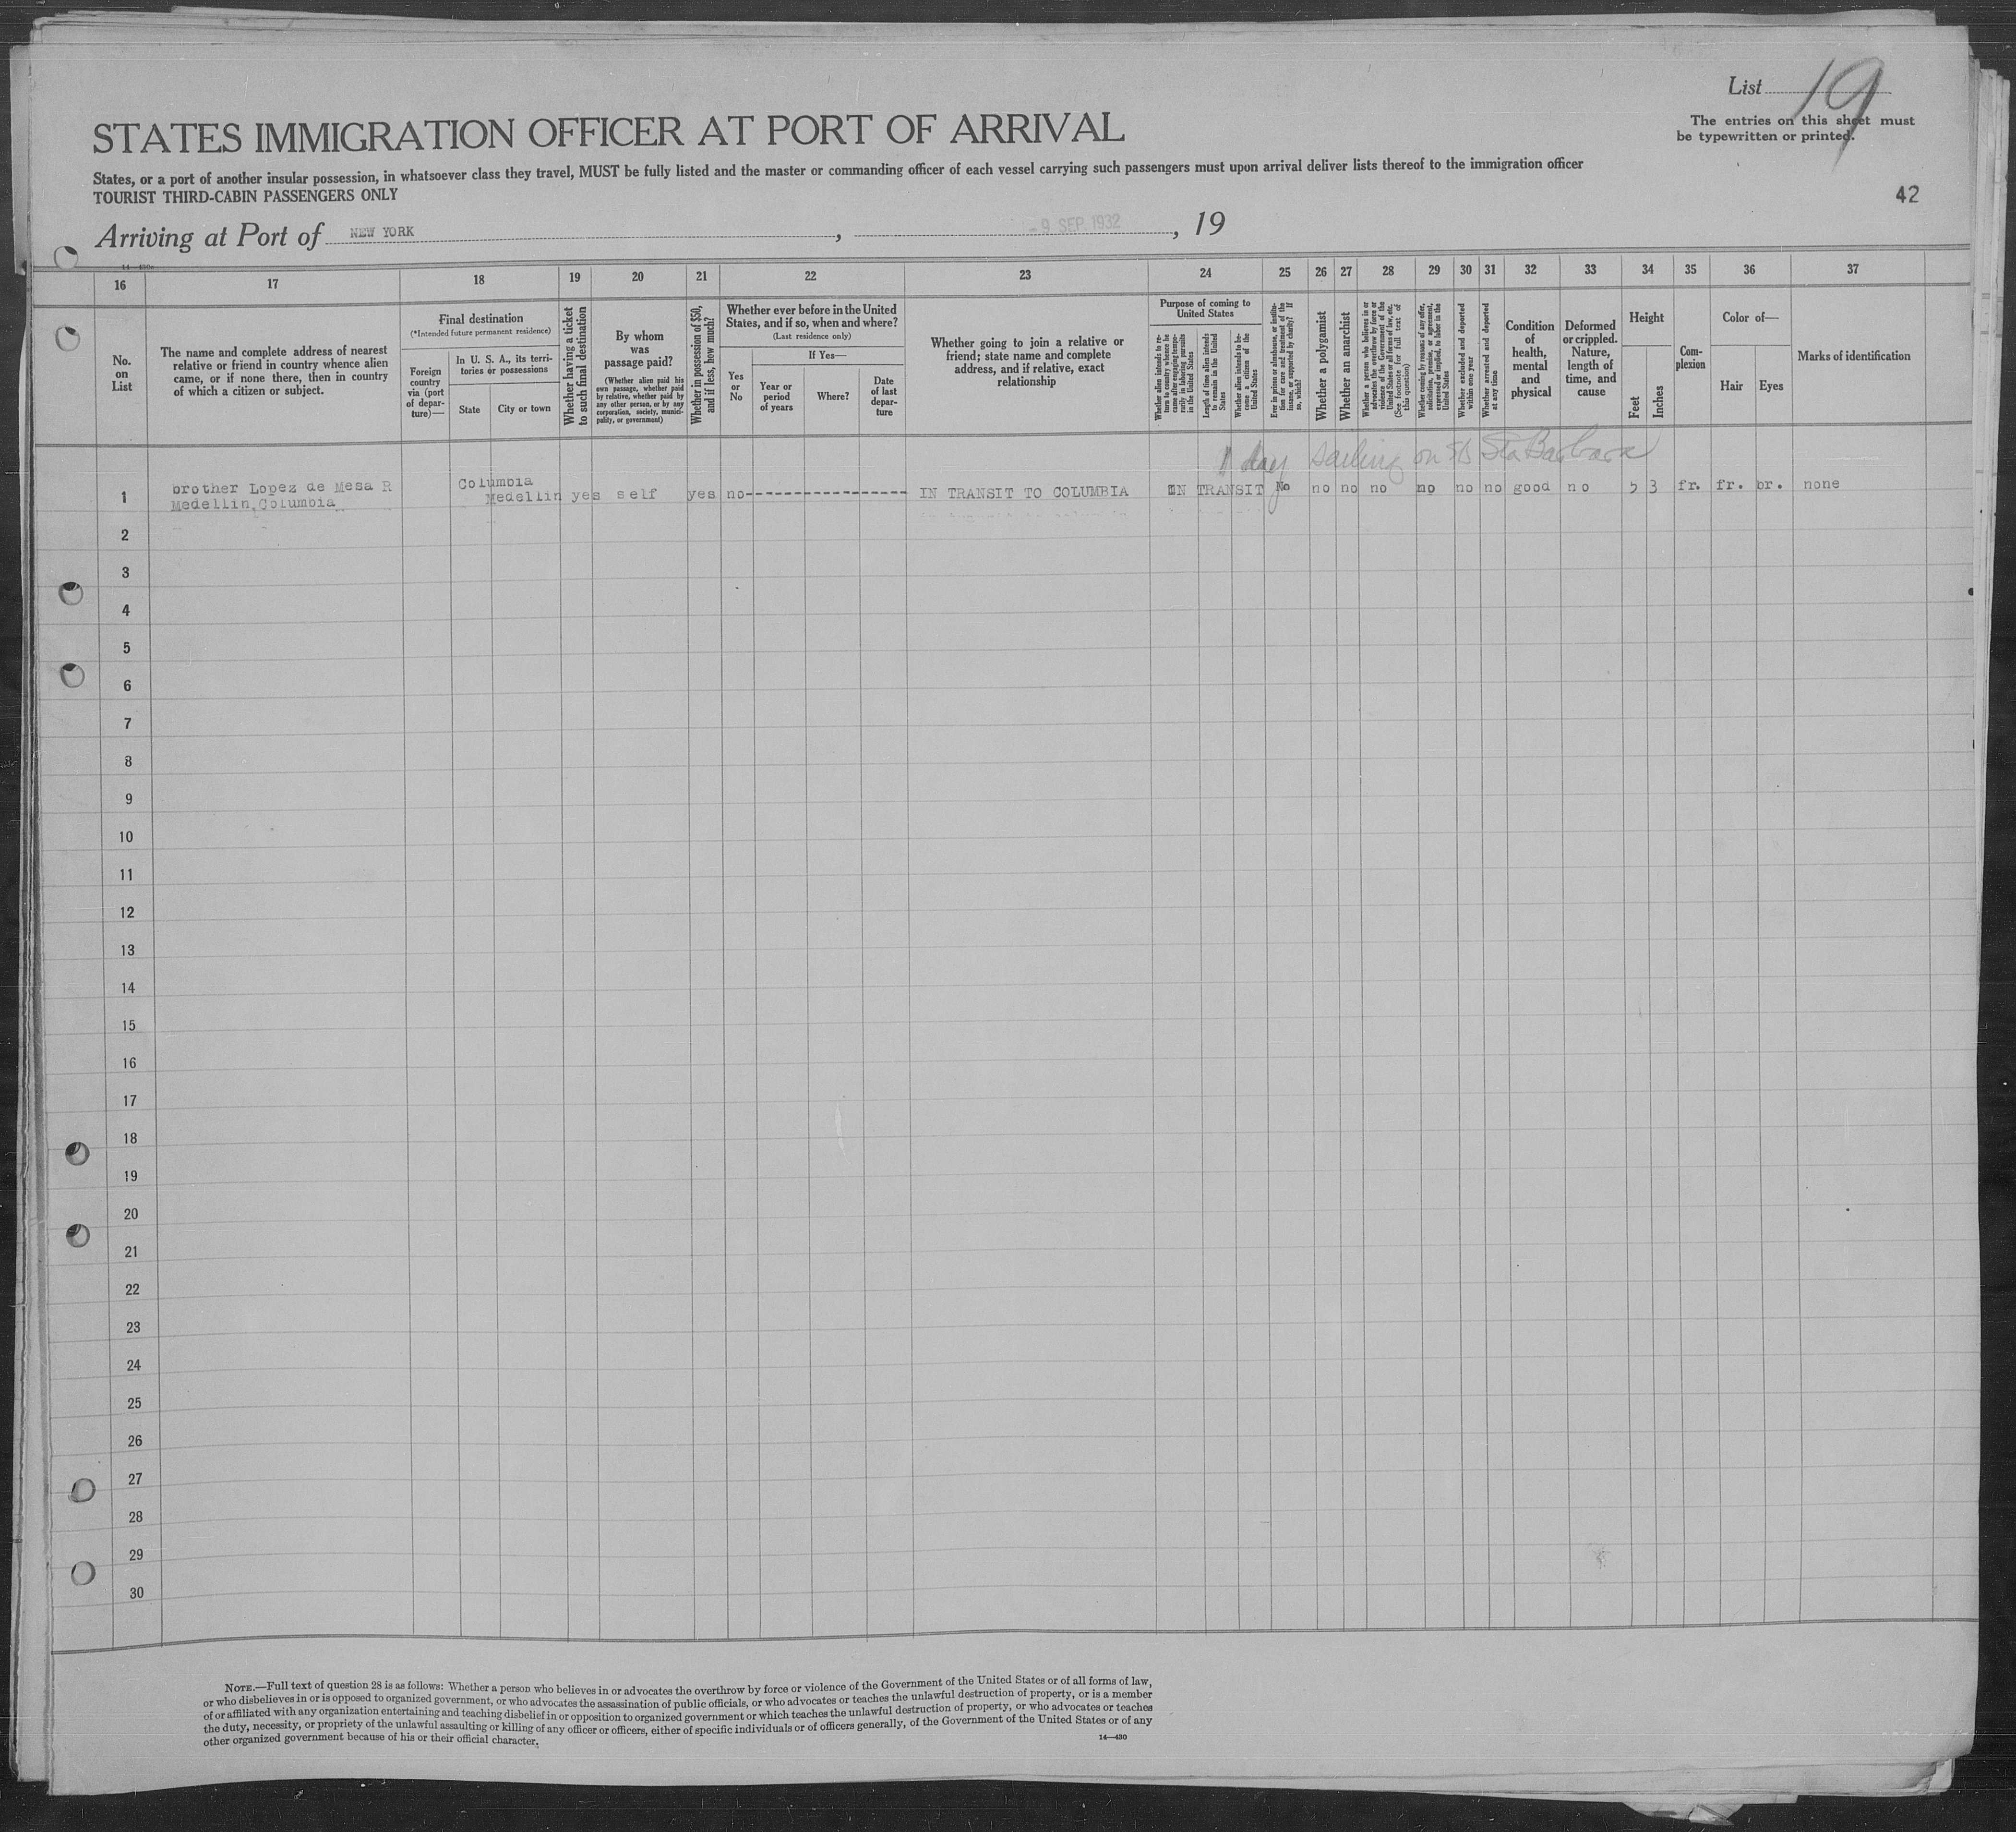 List 19
The entries on this sheet must
be typewritten or printed.
STATES IMMIGRATION OFFICER AT PORT OF ARRIVAL
States, or a port of another insular possession, in whatsoever class they travel, MUST be fully listed and the master or commanding officer of each vessel carrying such passengers must upon arrival deliver lists thereof to the immigration officer
TOURIST THIRD-CABIN PASSENGERS ONLY
42
Arriving at Port of NEW YORK, - 9 SEP 1932, 19
16 17 18 19 20 21 22 23 24 25 26 27 28 29 30 31 32 33 34 35 36 37
No.
on
List
The name and complete address of nearest
relative or friend in country whence alien
came, or if none there, then in country
of which a citizen or subject.
Final destination
(*Intended future permanent residence)
Foreign
country
via (port
of depar-
ture)—
In U. S. A., its terri-
tories or possessions
State
City or town
Whether having a ticket
to such final destination
By whom
was
passage paid?
(Whether alien paid his
own passage, whether paid
by relative, whether paid by
any other person, or by any
corporation, society, munici-
pality, or government)
Whether in possession of $50,
and if less, how much?
Whether ever before in the United
States, and if so, when and where?
(Last residence only)
Yes
or
No
If Yes—
Year or
period
of years
Where?
Date
of last
depar-
ture
Whether going to join a relative or
friend; state name and complete
address, and if relative, exact
relationship
Purpose of coming to
United States
Whether alien intends to re-
turn to country whence he
came after engaging tempo-
rarily in laboring pursuits
in the United States
Length of time alien intends
to remain in the United
States
Whether alien intends to be-
come a citizen of the
United States
Ever in prison or almshouse, or institu-
tion for care and treatment of the
insane, or supported by charity? If
so, which?
Whether a polygamist
Whether an anarchist
Whether a person who believes in or
advocates the overthrow by force or
violence of the Government of the
United States or all forms of law, etc.
(See footnote for full text of
this question)
Whether coming by reasons of any offer,
solicitation, promise, or agreement,
expressed or implied, to labor in the
United States
Whether excluded and deported
within one year
Whether arrested and deported
at any time
Condition
of
health,
mental
and
physical
Deformed
or crippled.
Nature,
length of
time, and
cause
Height
Feet
Inches
Com-
plexion
Color of—
Hair
Eyes
Marks of identification
1 day sailing on SS Sta Barbara
1 brother Lopez de Mesa R Columbia
Medellin, Columbia Medellin yes self yes no IN TRANSIT TO COLUMBIA IN TRANSIT No no no no no no no good no 5 3 fr. fr. br. none
2
3
4
5
6
7
8
9
10
11
12
13
14
15
16
17
18
19
20
21
22
23
24
25
26
27
28
29
30
NOTE.—Full text of question 28 is as follows: Whether a person who believes in or advocates the overthrow by force or violence of the Government of the United States or of all forms of law,
or who disbelieves in or is opposed to organized government, or who advocates the assassination of public officials, or who advocates or teaches the unlawful destruction of property, or is a member
of or affiliated with any organization entertaining and teaching disbelief in or opposition to organized government or which teaches the unlawful destruction of property, or who advocates or teaches
the duty, necessity, or propriety of the unlawful assaulting or killing of any officer or officers, either of specific individuals or of officers generally, of the Government of the United States or of any
other organized government because of his or their official character.
14—430